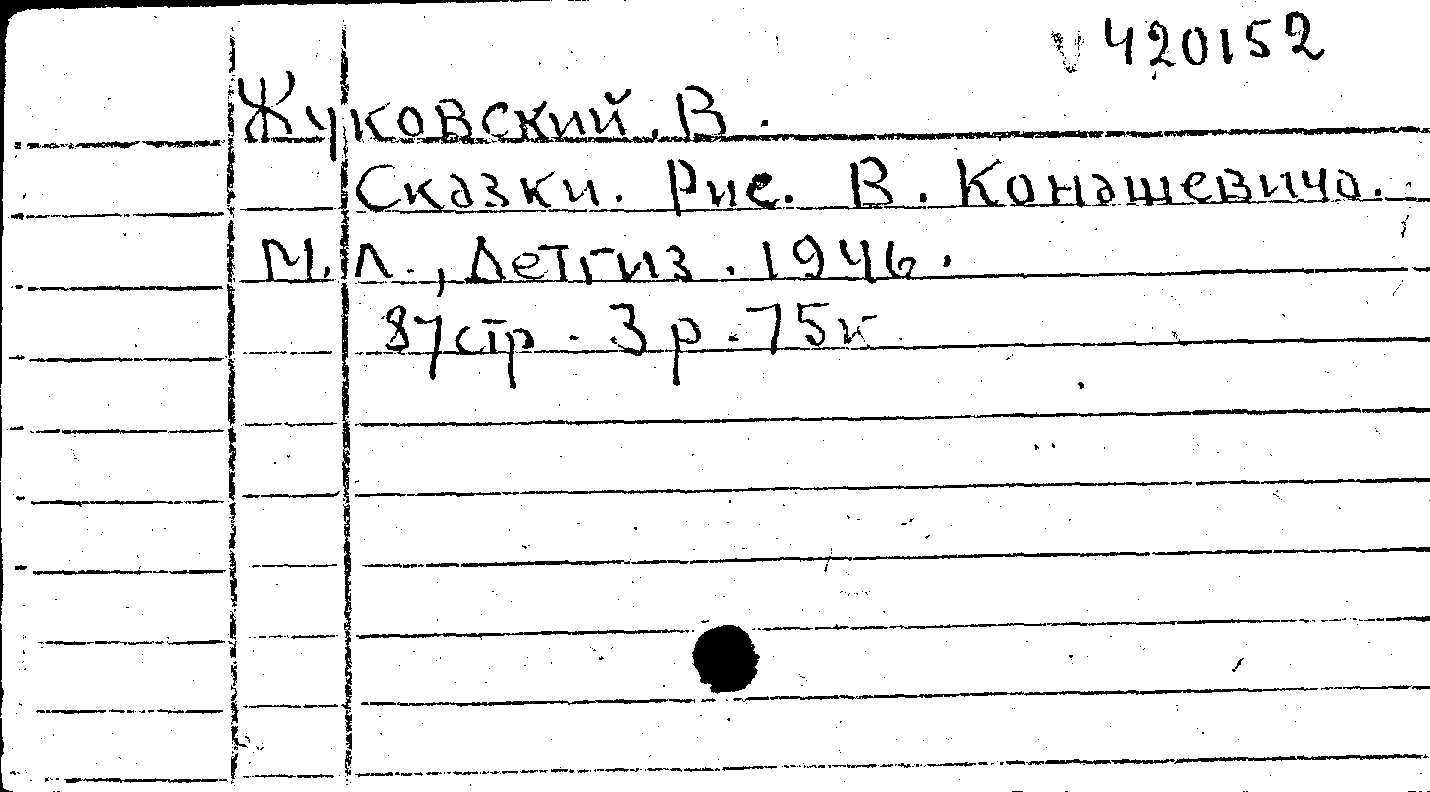 V 420152
Жуковский, В.
Сказки. Рис. В. Конашевича.
М.Л., Детгиз. 1946.
87 стр. 3 р. 75 к